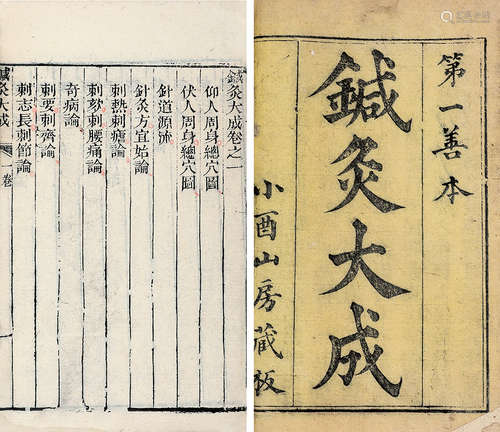 第一善本
鍼灸大成
小酉山房藏板
鍼灸大成卷之一
仰人周身總穴圖
伏人周身總穴圖
針道源流
針灸方宜始論
刺熱刺瘧論
刺欬刺腰痛論
奇病論
刺要刺齊論
刺志長刺節論
鍼灸大成
卷一